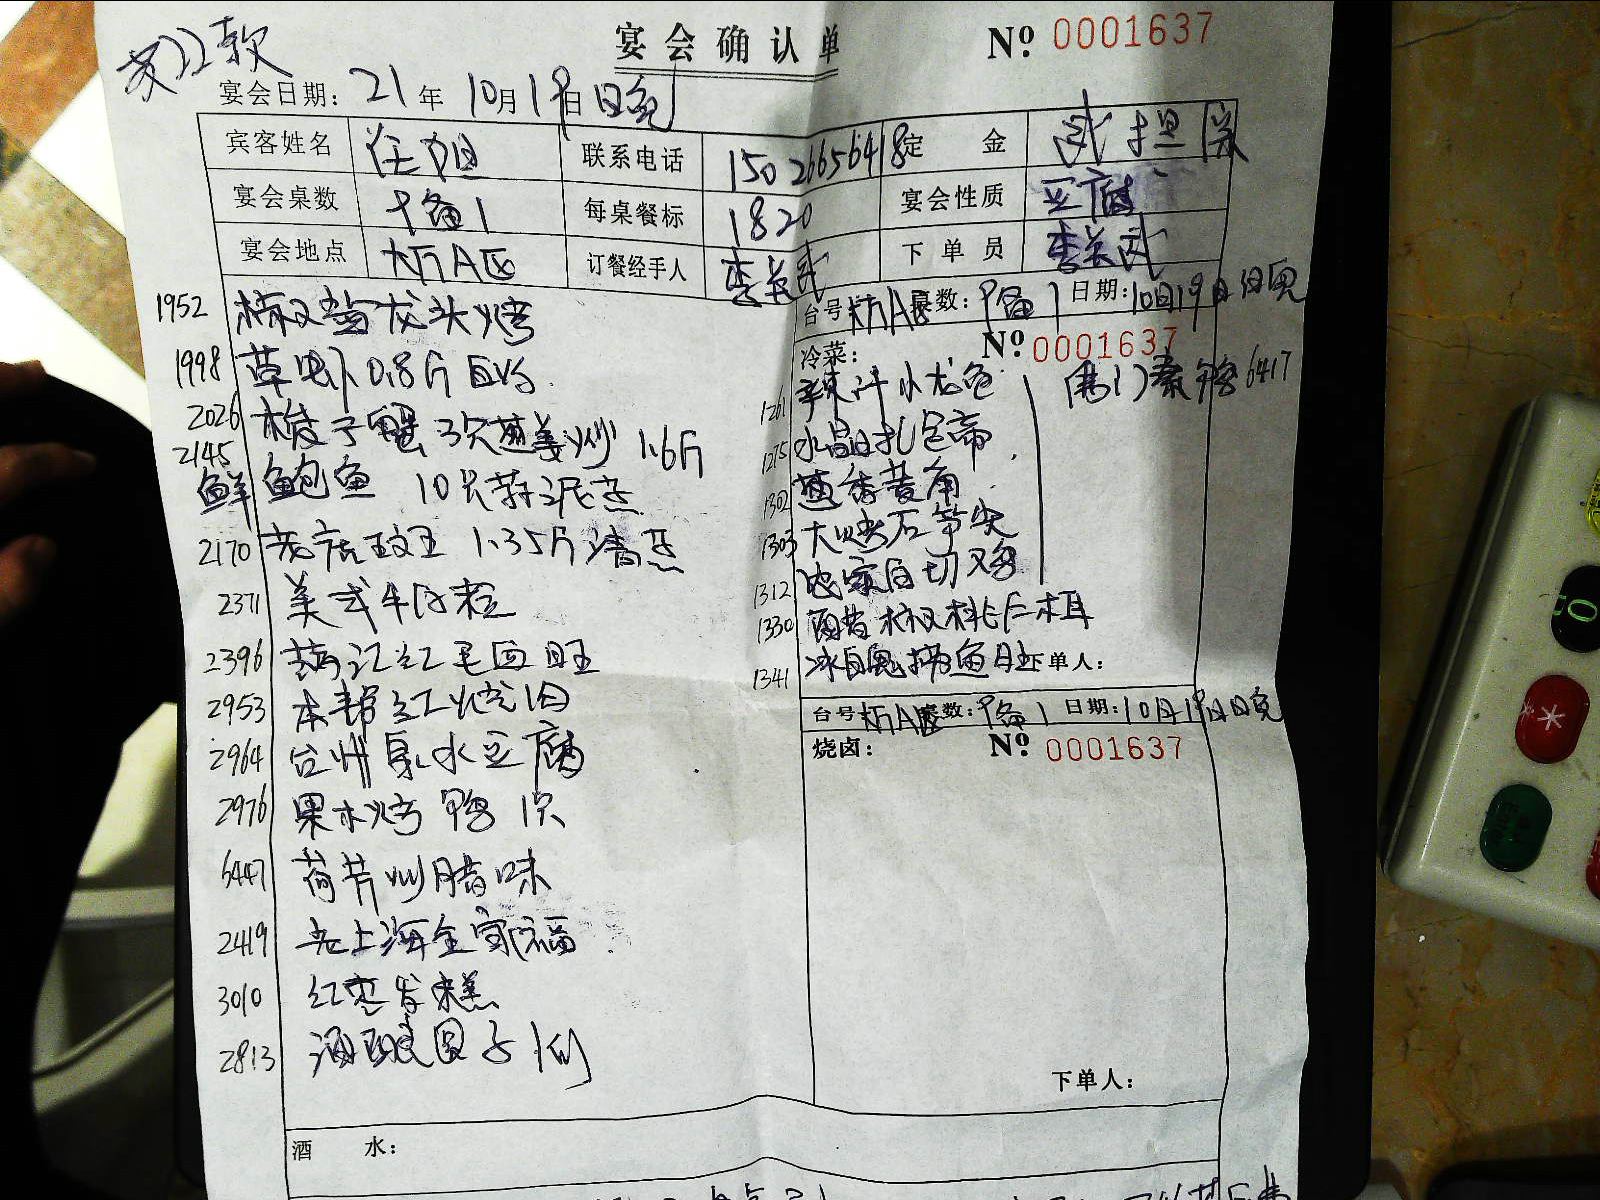 宴会确认单
№ 0001637
共22款
宴会日期: 21年 10月19日 日晚
宾客姓名 任姐 联系电话 15026656418 定金 武担保
宴会桌数 9备1 每桌餐标 1820 宴会性质 豆腐
宴会地点 大厅A区 订餐经手人 李关武 下单员 李关武
1952 椒盐龙头烤
1998 草虾0.8斤白灼
2026 梭子蟹3只葱姜炒 1.6斤
2145 鲜鲍鱼 10只蒜泥蒸
2170 老虎斑 1.35斤清蒸
2371 美式牛仔粒
2396 红毛血旺
2953 本帮红烧
2964 台州泉水豆腐
2976 果木烤鸭1只
6447 荷芹炒腊味
2419 老上海全家福
3010 红枣发糕
2813 酒酿圆子1例
台号: 大厅A区 桌数: 9备1 日期: 10月19日 日晚
冷菜: № 0001637
1261 小龙鱼
1275 水晶扎色蹄
1302 葱香黄角
1303 大烤石笋尖
1312 农家白切鸡
1330 醋椒桃仁木耳
1341 冰
素鸭 6417
下单人:
台号: 大厅A区 桌数: 9备1 日期: 10月19日 日晚
烧卤: № 0001637
下单人:
酒 水: